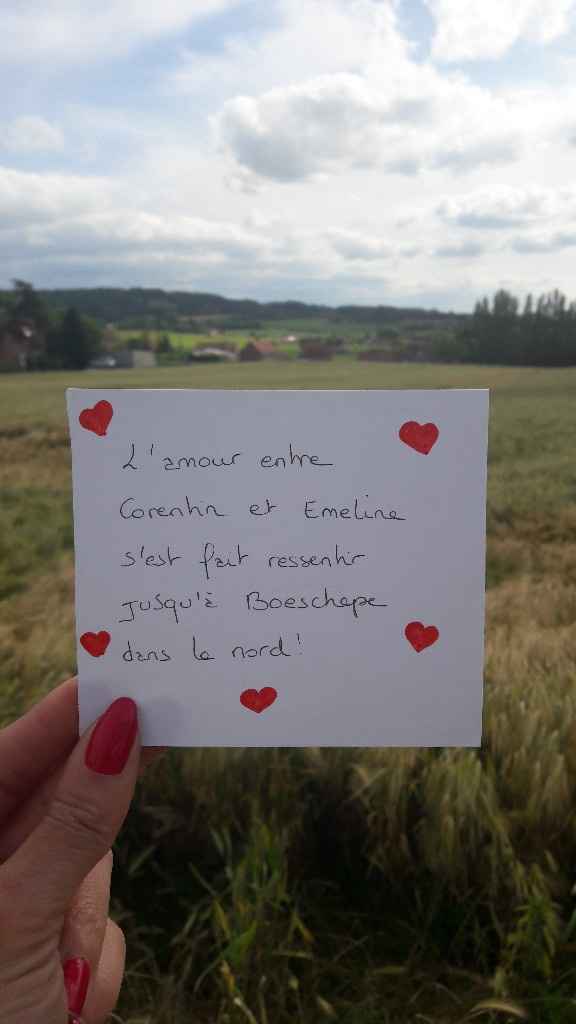 L'amour entre
Corentin et Emeline
s'est fait ressentir
jusqu'à Boeschepe
dans le nord !